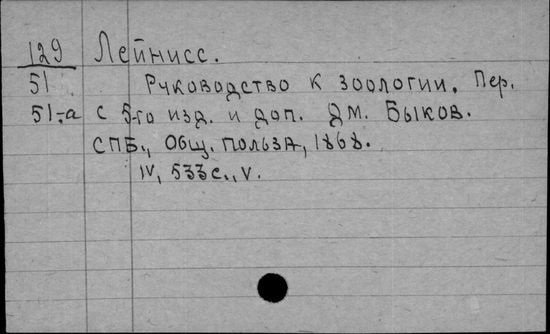 129 Лейнисс.
51 Руководство к зоологии. Пер.
51-а с 5-го изд. и доп. Дм. Быков.
СПБ., Общ. польза, 1868.
IV, 533 с., V.